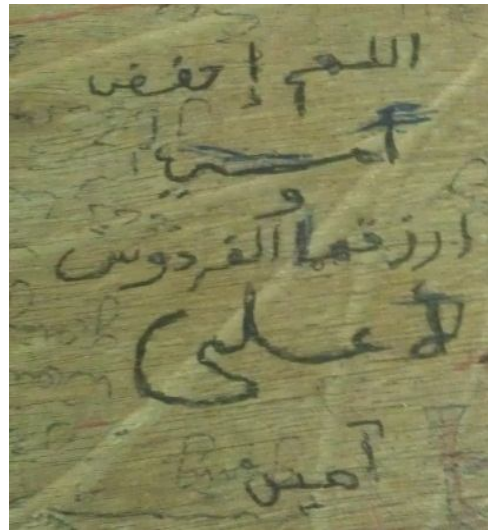 اللهم إحفض
أمي
و
ارزقها الفردوس
لأعلى
آمين